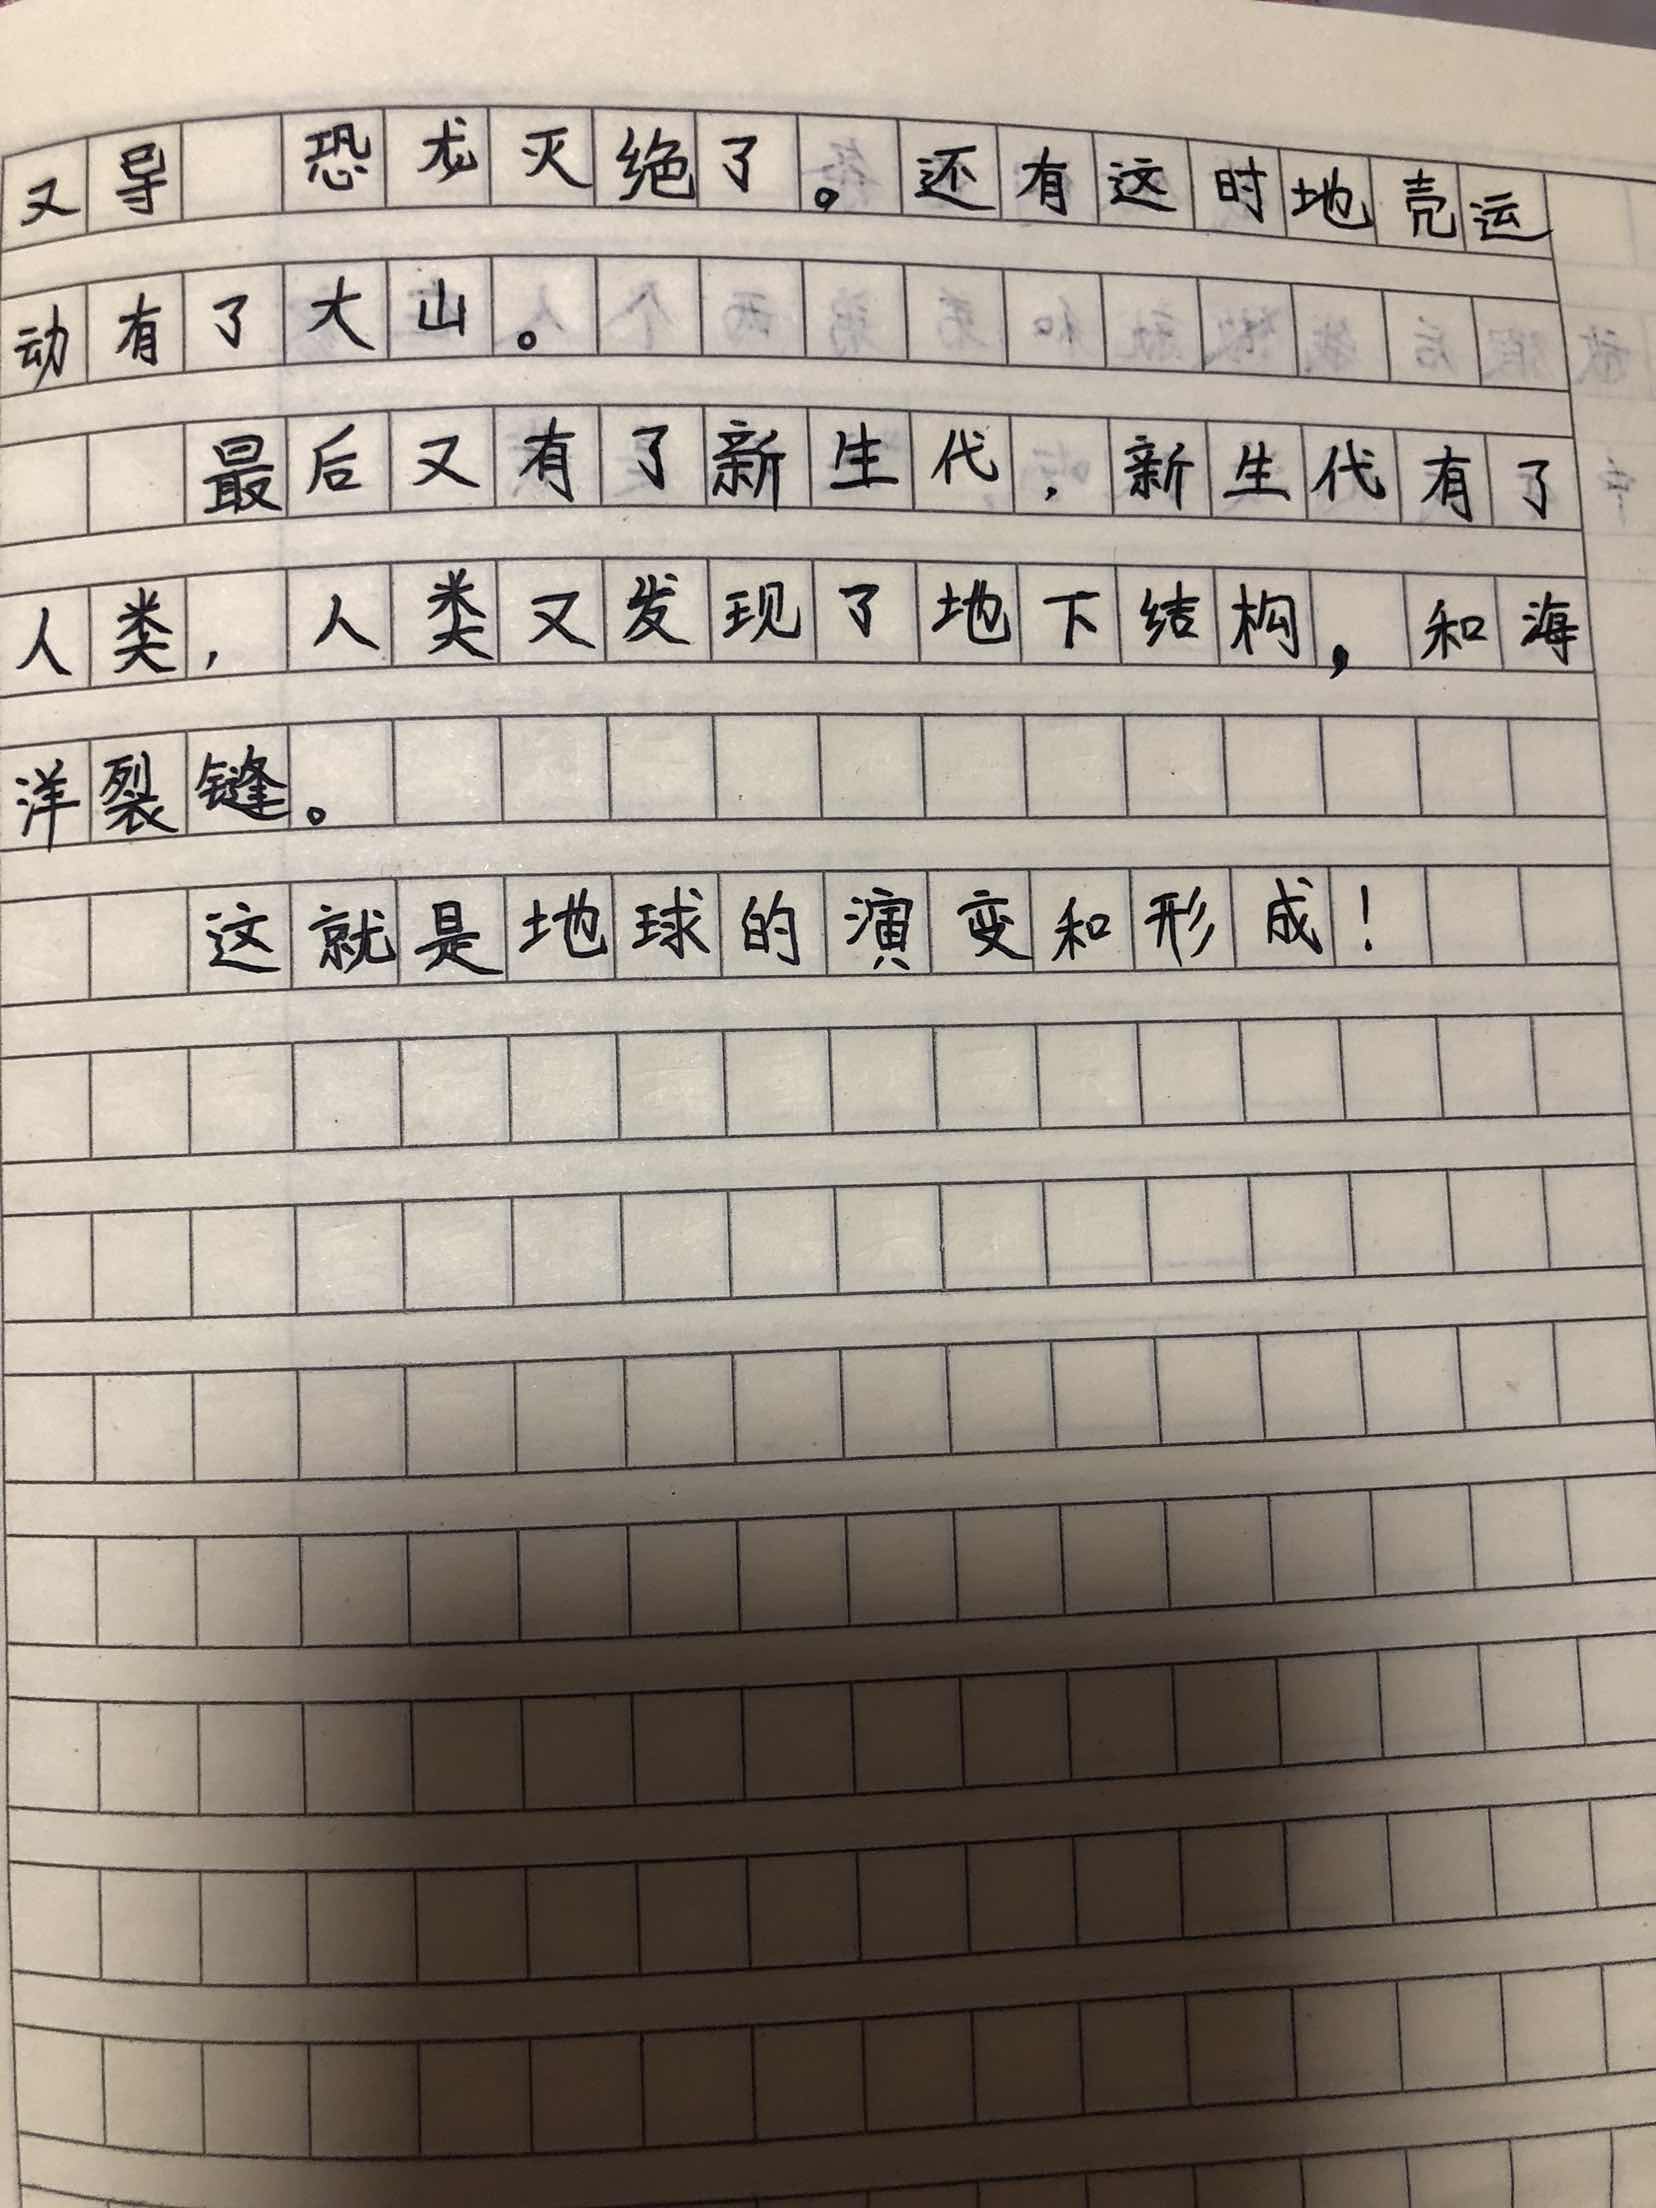 又导 恐龙灭绝了。还有这时地壳运
动有了大山。
最后又有了新生代，新生代有了
人类，人类又发现了地下结构，和海
洋裂缝。
这就是地球的演变和形成！